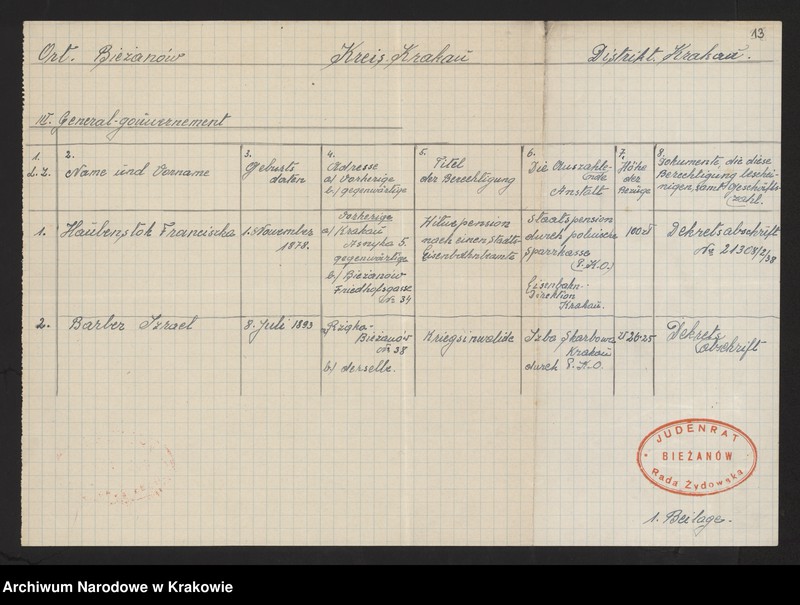 13
Ort. Bieżanów Kreis. Krakau Distrikt. Krakau.
IV. General-gouvernement
1. L. Z.
2. Name und Vorname
3. Geburts daten
4. Adresse
a) Vorherige
b) gegenwärtige
5. Titel
der Berechtigung
6. Die Auszahle-
ende
Anstalt
7. Höhe
der
Bezüge
8. Dokumente, die diese
Berechtigung beschei-
nigen, samt Geschäfts-
zahl.
1. Haubenstok Franciscka
1. November
1878.
Vorherige
a) Krakau
Asnyka 5.
gegenwärtige
b) Bieżanów
Friedhofsgasse
No 34
Witwepension
nach einen Stadts-
Eisenbahnbeamte
Staatspension
durch polnische
Sparrkasse
(P.K.O.)
Eisenbahn-
Direktion
Krakau.
100 zł
Dekretsabschrift
No 21308/2/38
2. Barber Izrael
8. Juli 1893
a) Rżąka-
Bieżanów
No 38
b) derselbe.
Kriegsinwalide
Izba Skarbowa
Krakau
durch P.K.O.
zł 26.25
Dekrets
abschrift
JUDENRAT
BIEŻANÓW
Rada Żydowska
1. Beilage.
Archiwum Narodowe w Krakowie